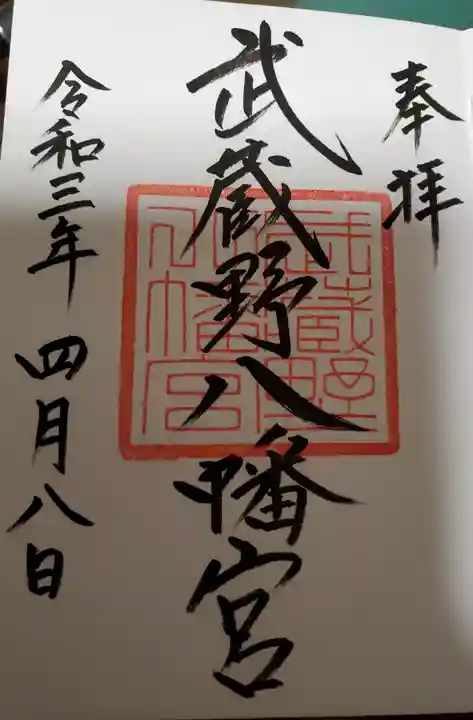 奉拝
武蔵野八幡宮
令和三年 四月八日
武蔵野
八幡宮